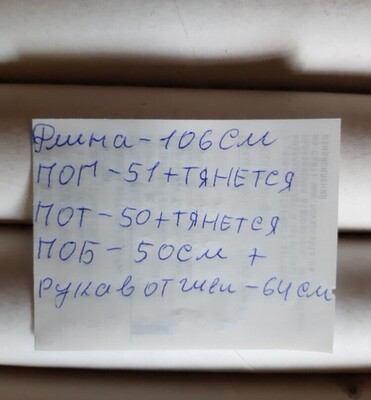 Длина - 106 см
ПОГ - 51 + тянется
ПОТ - 50 + тянется
ПОБ - 50 см +
рукав от шеи - 64 см